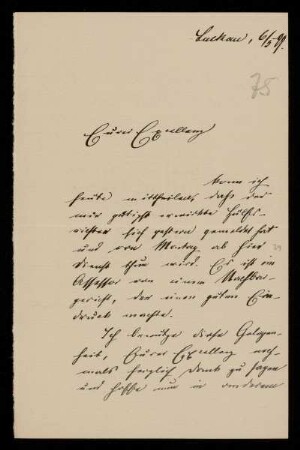 Luckau, 6/5 89.
75
Eurer Excellenz
kann ich
heute mittheilen, daß der
mir gütigst erwirkte Hülfs-
richter sich gestern gemeldet hat
und von Montag ab hier
Dienst thun wird. Es ist ein
Assessor von einem Nachbar-
gericht, der einen guten Ein-
druck machte.
Ich benutze diese Gelegen-
heit, Eurer Excellenz noch-
mals herzlich Dank zu sagen
und hoffe nur in anderem